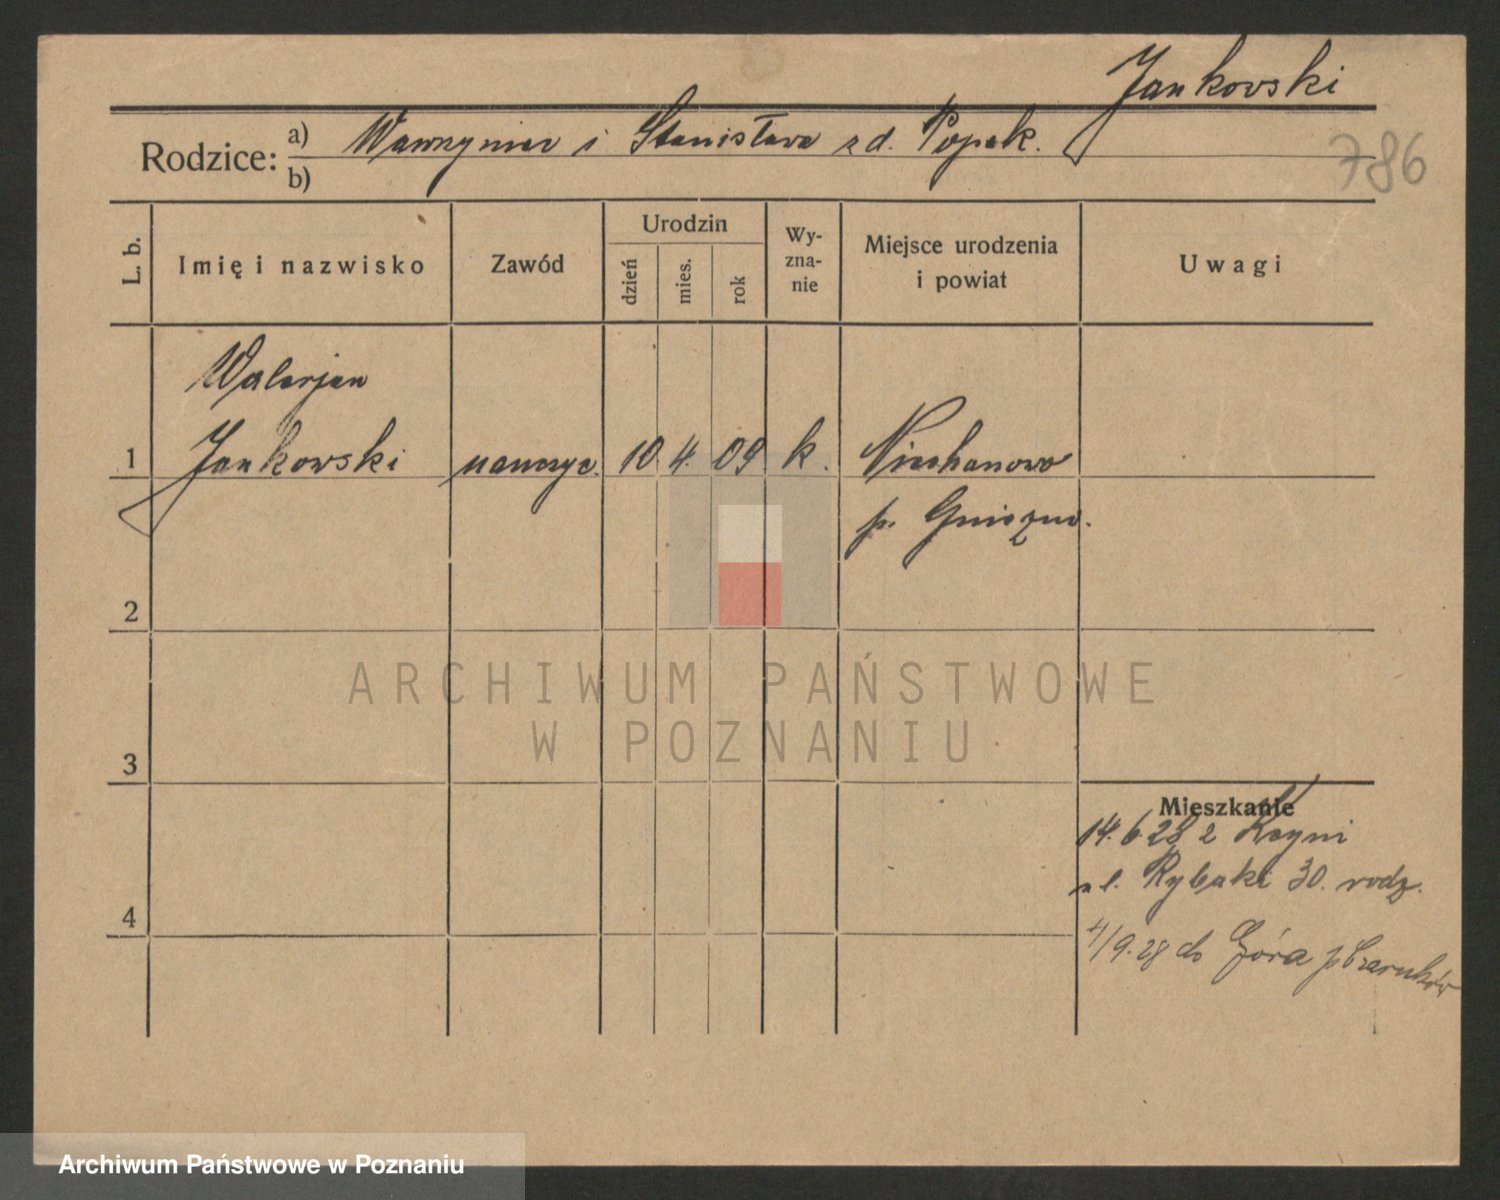 Jankowski
Rodzice: a) Wawrzyniec i Stanisława z d. Popek.
b)
786
L. b.
Imię i nazwisko
Zawód
Urodzin
dzień
mies.
rok
Wy-
zna-
nie
Miejsce urodzenia
i powiat
Uwagi
Walerjan
1 Jankowski nauczyc. 10. 4. 09 k. Niechanowo
p. Gniezno.
2
3
4
ARCHIWUM PAŃSTWOWE
W POZNANIU
Mieszkanie
14.6.28 z Kcyni
ul. Rybaki 30. rodz.
4/9.28 do Góra p Czarnków
Archiwum Państwowe w Poznaniu